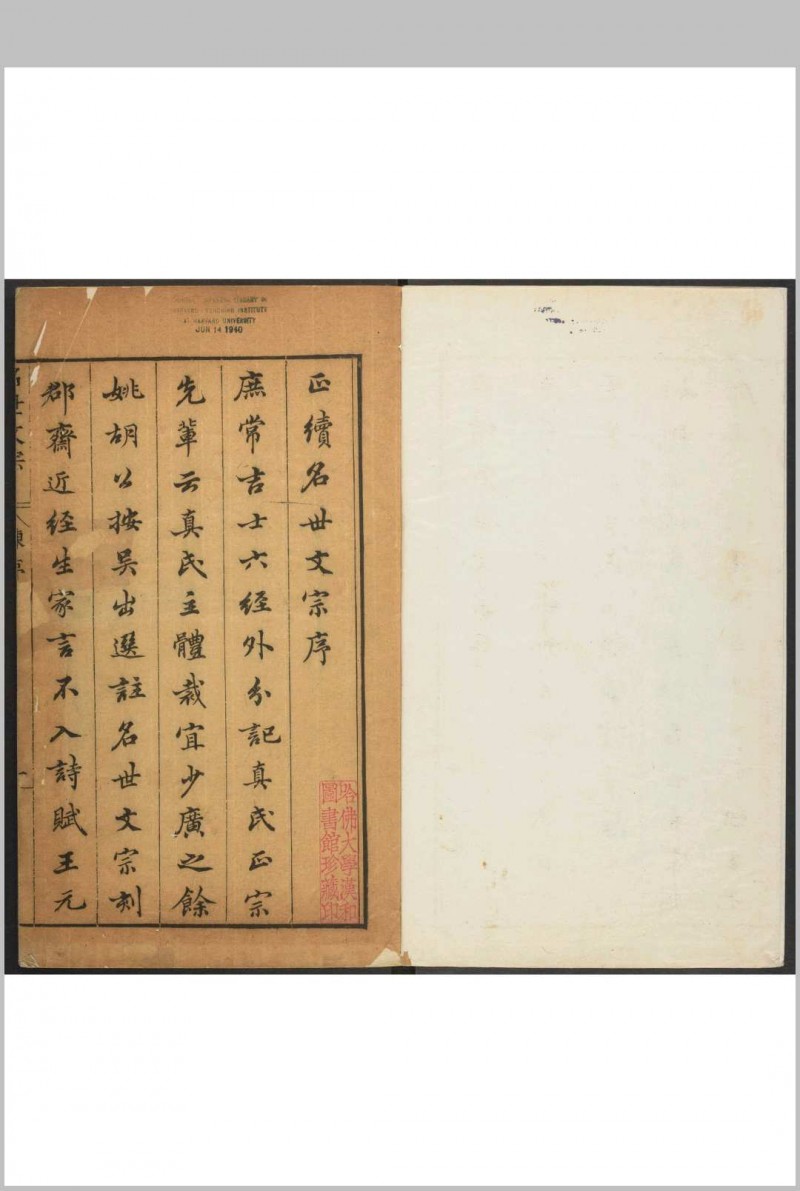 正續名世文宗序
庶常吉士六經外分記真氏正宗
先輩云真氏主體裁宜少廣之餘
姚胡公按吳出選註名世文宗刻
郡齋近経生家言不入詩賦王元
名世文宗
陳序
哈佛大學漢和
圖書館珍藏印
LIBRARY
INSTITUTE
AT HARVARD UNIVERSITY
JUN 14 1940